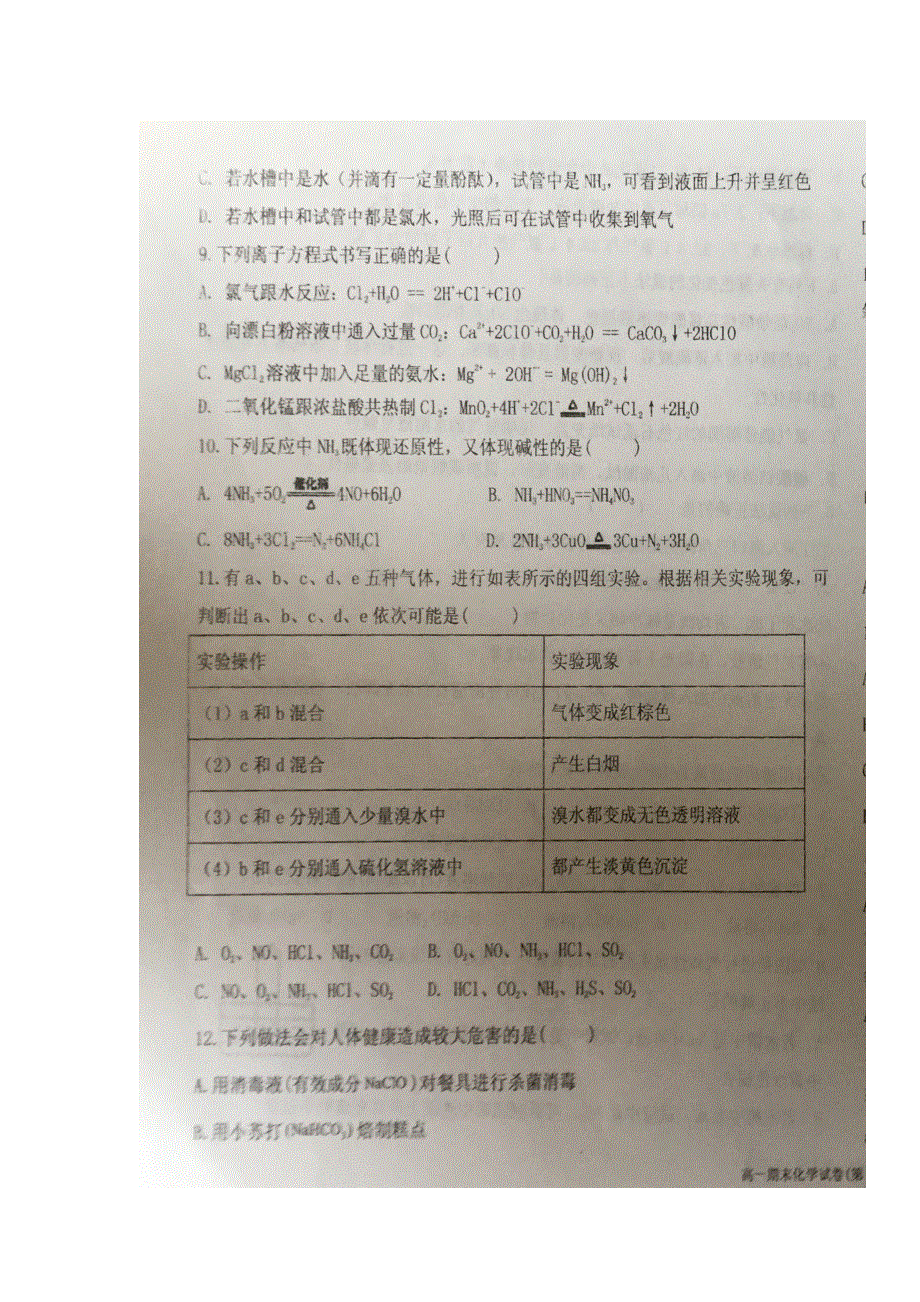 C. 若水槽中是水（并滴有一定量酚酞），试管中是NH₃，可看到液面上升并呈红色
D. 若水槽中和试管中都是氯水，光照后可在试管中收集到氧气
9.下列离子方程式书写正确的是(  )
A. 氯气跟水反应：Cl₂+H₂O == 2H⁺+Cl⁻+ClO⁻
B. 向漂白粉溶液中通入过量CO₂：Ca²⁺+2ClO⁻+CO₂+H₂O == CaCO₃↓+2HClO
C. MgCl₂溶液中加入足量的氨水：Mg²⁺ + 2OH⁻ = Mg(OH)₂↓
D. 二氧化锰跟浓盐酸共热制Cl₂：MnO₂+4H⁺+2Cl⁻ △ Mn²⁺+Cl₂↑+2H₂O
10.下列反应中NH₃既体现还原性，又体现碱性的是(  )
A. 4NH₃+5O₂ 催化剂 △ 4NO+6H₂O B. NH₃+HNO₃==NH₄NO₃
C. 8NH₃+3Cl₂==N₂+6NH₄Cl D. 2NH₃+3CuO △ 3Cu+N₂+3H₂O
11.有a、b、c、d、e五种气体，进行如表所示的四组实验。根据相关实验现象，可
判断出a、b、c、d、e依次可能是(  )
实验操作 实验现象
（1）a和b混合 气体变成红棕色
（2）c和d混合 产生白烟
（3）c和e分别通入少量溴水中 溴水都变成无色透明溶液
（4）b和e分别通入硫化氢溶液中 都产生淡黄色沉淀
A. O₂、NO、HCl、NH₃、CO₂ B. O₂、NO、NH₃、HCl、SO₂
C. NO、O₂、NH₃、HCl、SO₂ D. HCl、CO₂、NH₃、H₂S、SO₂
12.下列做法会对人体健康造成较大危害的是(  )
A.用消毒液(有效成分NaClO)对餐具进行杀菌消毒
B.用小苏打(NaHCO₃)焙制糕点
高一期末化学试卷(第